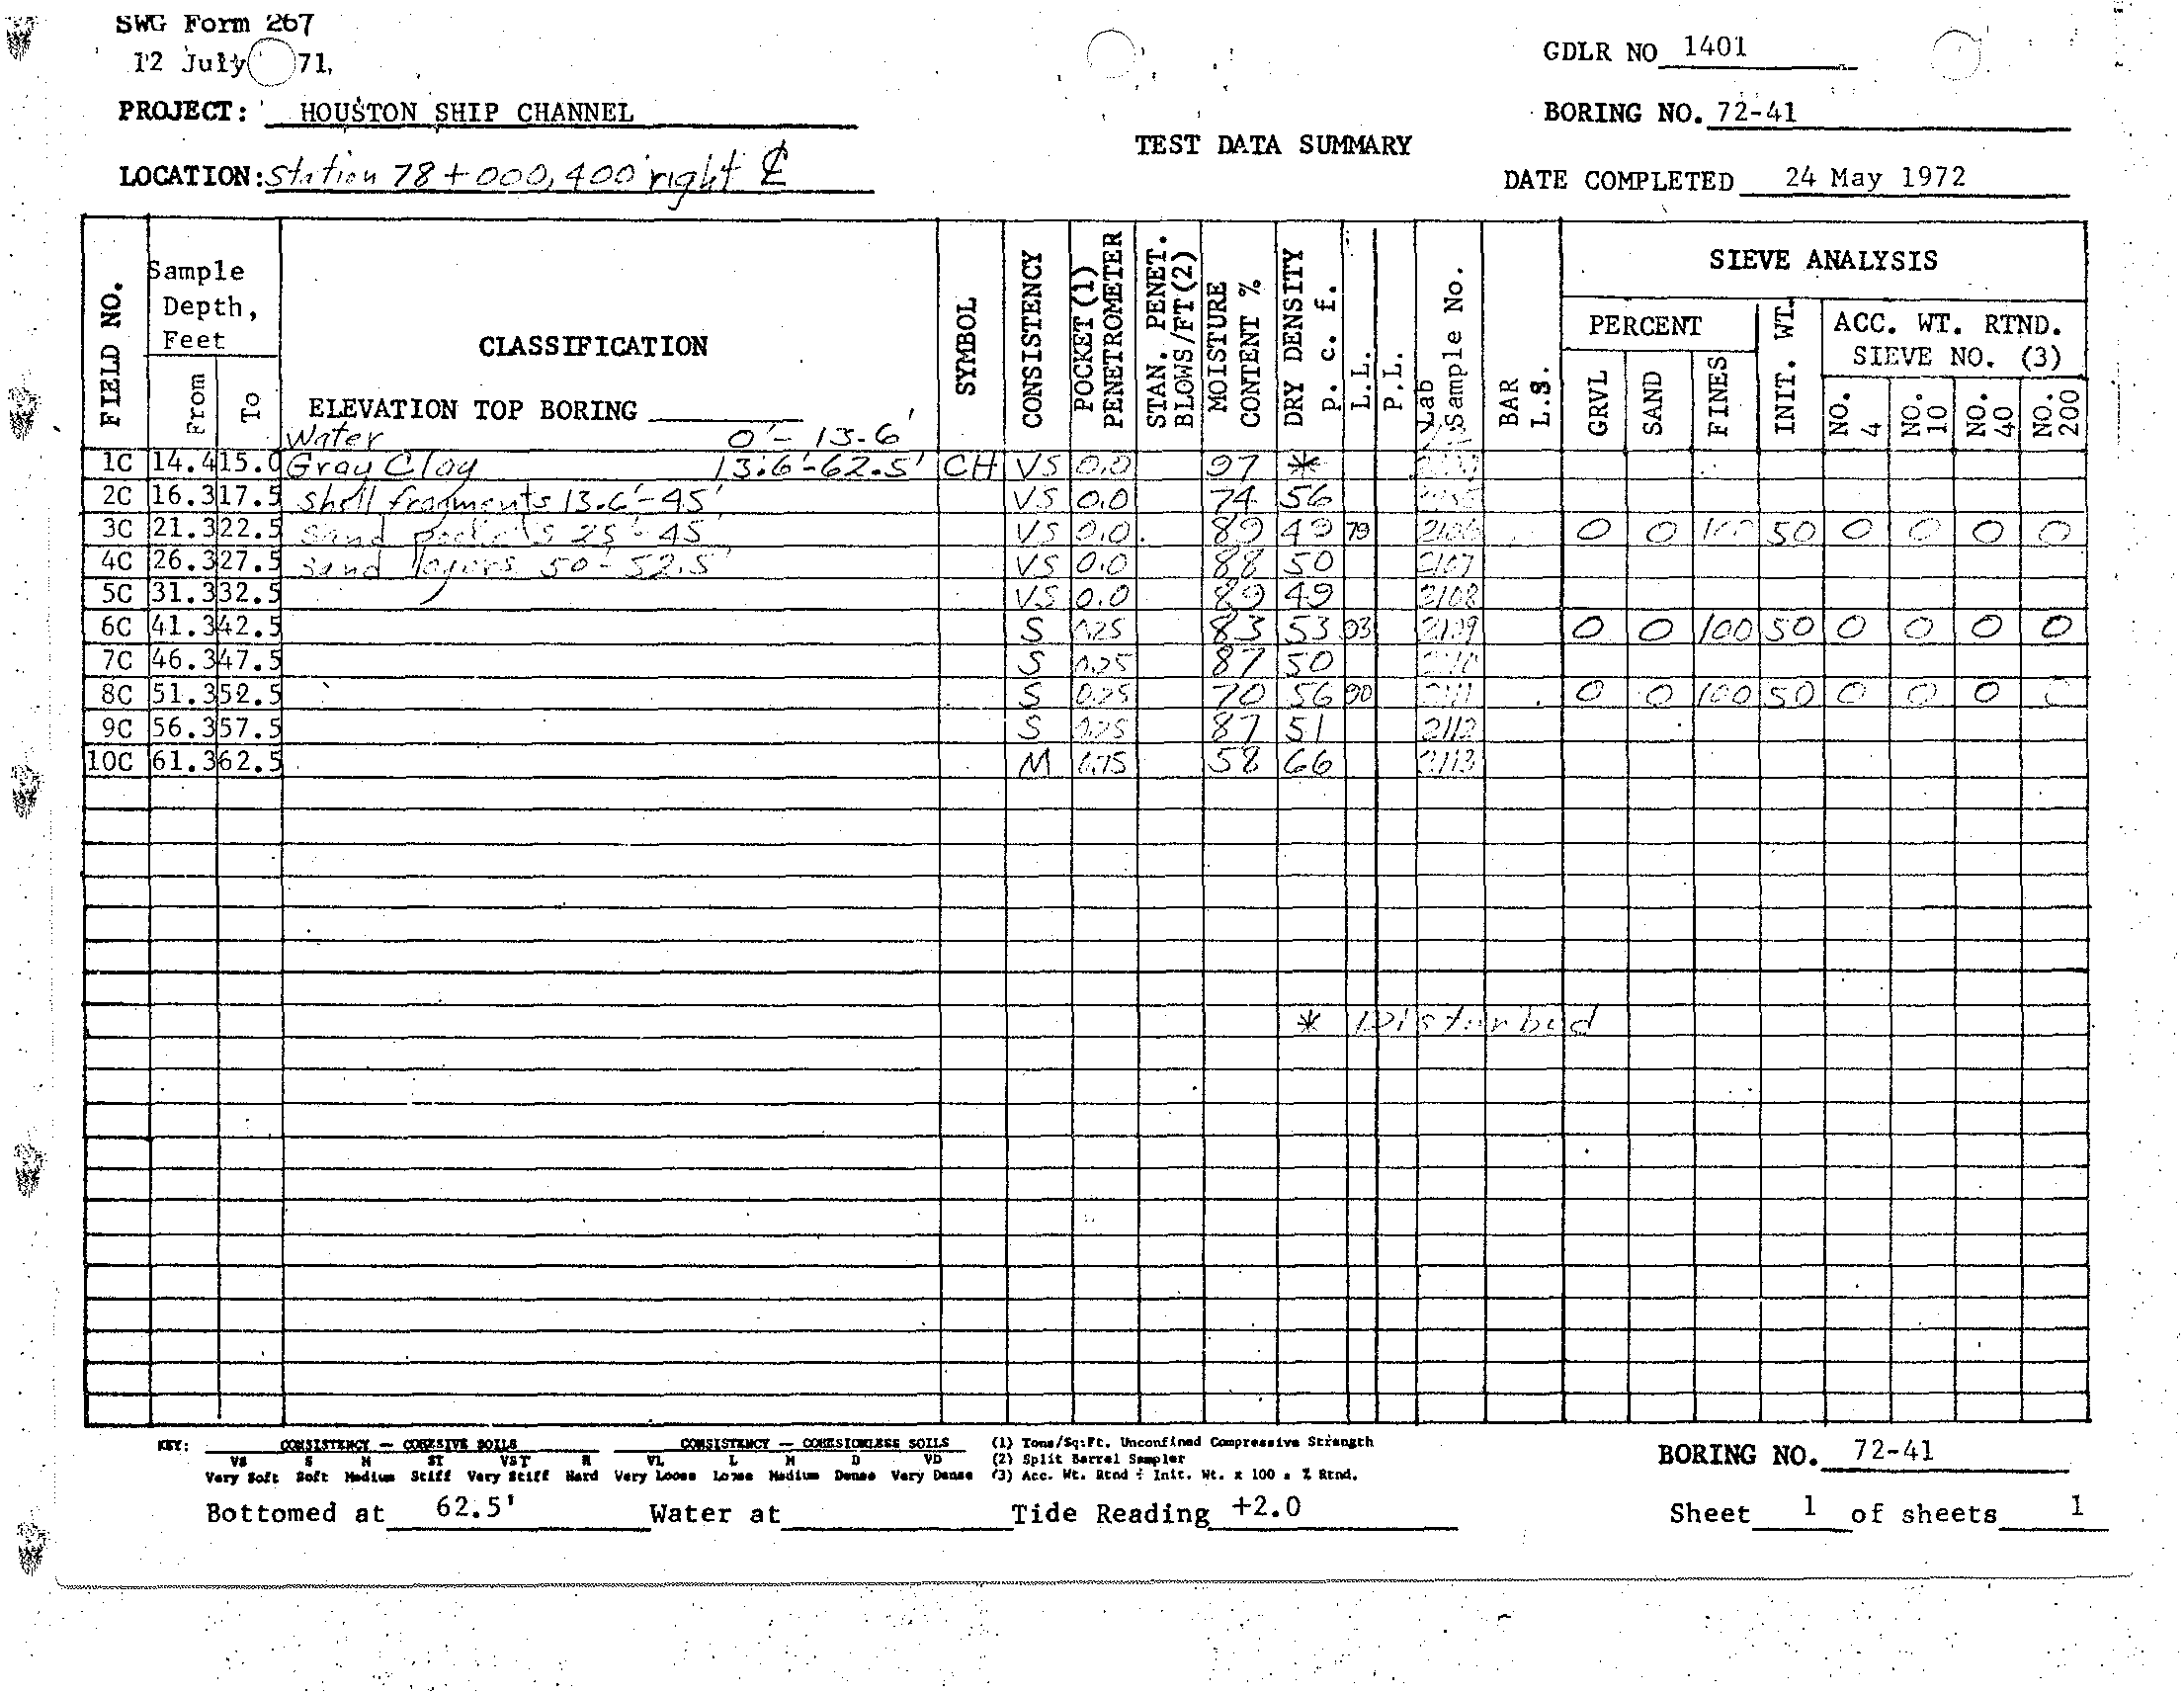 SWG Form 267
12 July 71,
GDLR NO 1401
PROJECT: HOUSTON SHIP CHANNEL
BORING NO. 72-41
TEST DATA SUMMARY
LOCATION: Station 78+000, 400' right ℄
DATE COMPLETED 24 May 1972
FIELD NO.
Sample Depth, Feet
From
To
CLASSIFICATION
ELEVATION TOP BORING
SYMBOL
CONSISTENCY
POCKET (1) PENETROMETER
STAN. PENET. BLOWS/FT(2)
MOISTURE CONTENT %
DRY DENSITY p. c. f.
L.L.
P.L.
Lab Sample No.
BAR L.S.
SIEVE ANALYSIS
PERCENT
GRVL
SAND
FINES
INIT. WT.
ACC. WT. RTND. SIEVE NO. (3)
NO. 4
NO. 10
NO. 40
NO. 200
Water 0'- 13.6'
1C 14.4 15.0 Gray Clay 13.6'-62.5' CH VS 0.0 97 *
2C 16.3 17.5 shell fragments 13.6'-45' VS 0.0 74 56
3C 21.3 22.5 sand pockets 25'-45' VS 0.0 89 49 79 2106 0 0 100 50 0 0 0 0
4C 26.3 27.5 sand layers 50'-52.5' VS 0.0 88 50 2107
5C 31.3 32.5 VS 0.0 89 49 2108
6C 41.3 42.5 S 0.25 83 53 93 2109 0 0 100 50 0 0 0 0
7C 46.3 47.5 S 0.25 87 50 2110
8C 51.3 52.5 S 0.25 70 56 90 2111 0 0 100 50 0 0 0 0
9C 56.3 57.5 S 0.25 87 51 2112
10C 61.3 62.5 M 0.75 58 66 2113
* Disturbed
KEY: CONSISTENCY — COHESIVE SOILS CONSISTENCY — COHESIONLESS SOILS (1) Tons/Sq.Ft. Unconfined Compressive Strength
VS S M ST VST H VL L M D VD (2) Split Barrel Sampler
Very Soft Soft Medium Stiff Very Stiff Hard Very Loose Loose Medium Dense Very Dense (3) Acc. Wt. Rtnd ÷ Init. Wt. x 100 = % Rtnd.
BORING NO. 72-41
Bottomed at 62.5' Water at Tide Reading +2.0
Sheet 1 of sheets 1